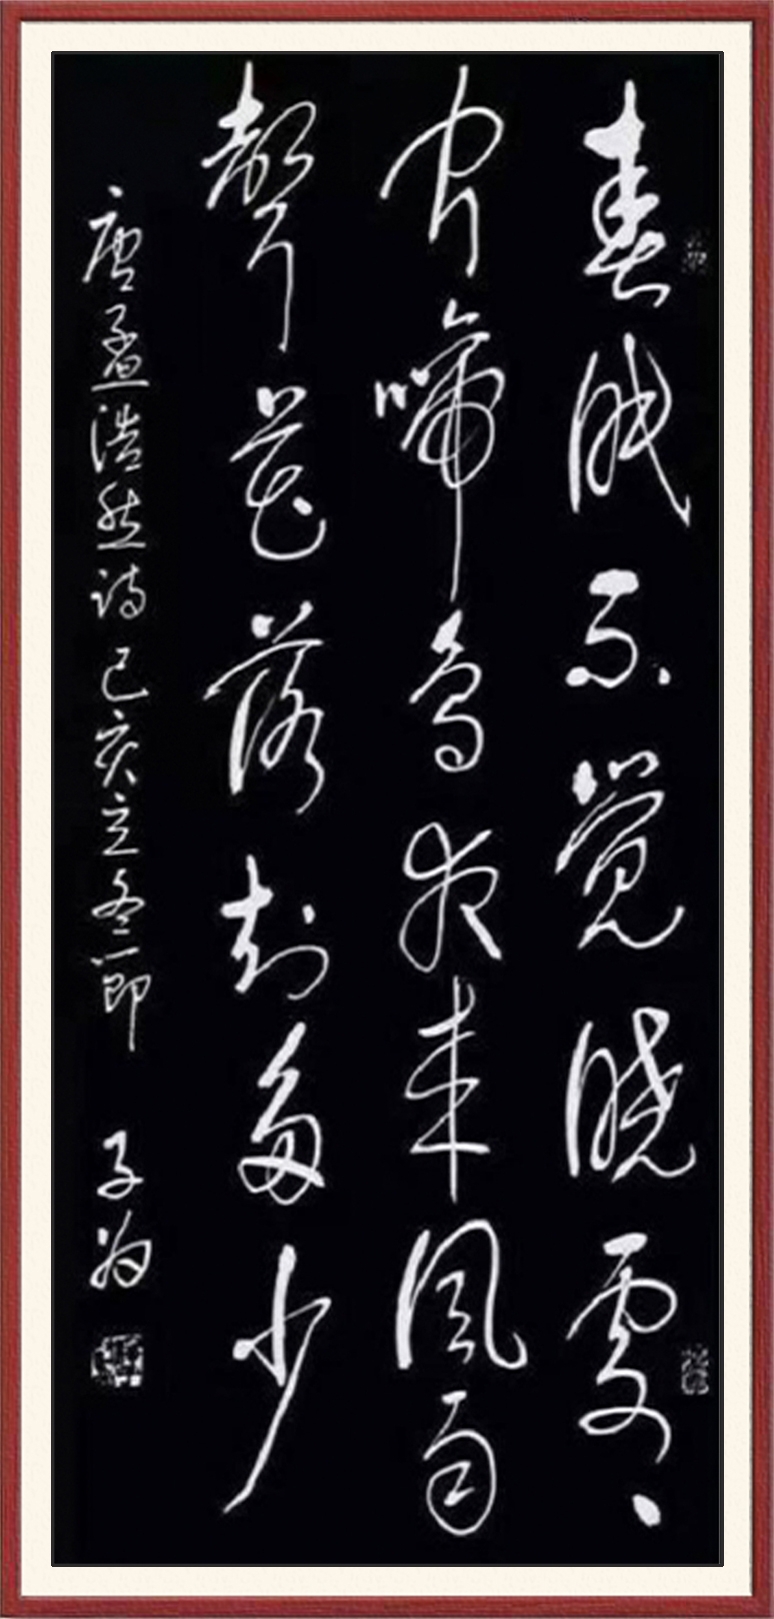 春眠不覺曉處々
聞啼鳥夜來風雨
聲花落知多少
唐孟浩然詩己亥立冬節 子為